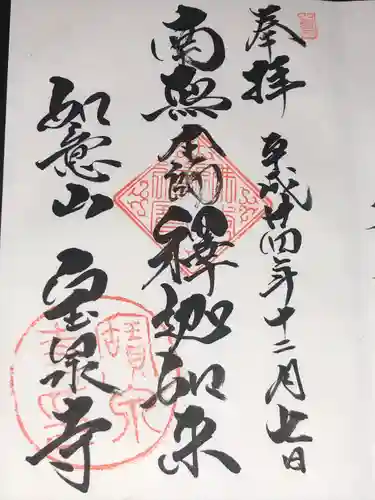 奉拝
平成廿四年十二月七日
南無本師釋迦如来
如意山
宝泉寺